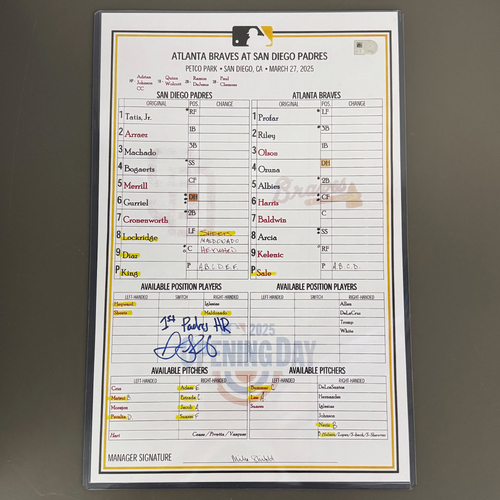 ATLANTA BRAVES AT SAN DIEGO PADRES
PETCO PARK • SAN DIEGO, CA • MARCH 27, 2025
HP Adrian Johnson CC 1B Quinn Wolcott 2B Ramon DeJesus 3B Paul Clemons
SAN DIEGO PADRES ATLANTA BRAVES
ORIGINAL POS. CHANGE ORIGINAL POS. CHANGE
1 Tatis, Jr. RF 1 Profar LF
2 Arraez 1B 2 Riley 3B
3 Machado 3B 3 Olson 1B
4 Bogaerts SS 4 Ozuna DH
5 Merrill CF 5 Albies 2B
6 Gurriel DH 6 Harris CF
7 Cronenworth 2B 7 Baldwin C
8 Lockridge LF SHEETS 8 Arcia SS
MALDONADO
9 Diaz C HEYWARD 9 Kelenic RF
P King P A.B.C.D.E.F. P Sale P A.B.C.D.
AVAILABLE POSITION PLAYERS AVAILABLE POSITION PLAYERS
LEFT-HANDED SWITCH RIGHT-HANDED LEFT-HANDED SWITCH RIGHT-HANDED
Heyward Iglesias Allen
Sheets Maldonado DeLaCruz
Tromp
White
1st Padres HR
2025
OPENING DAY
AVAILABLE PITCHERS AVAILABLE PITCHERS
LEFT-HANDED RIGHT-HANDED LEFT-HANDED RIGHT-HANDED
Cruz Adam E Bummer C DeLosSantos
Matsui B Estrada C Lee Hernandez
Morejon Jacob Suarez Iglesias
Peralta D Suarez F Johnson
Neris B
Hart Cease / Pivetta / Vasquez
MANAGER SIGNATURE Mike Shildt